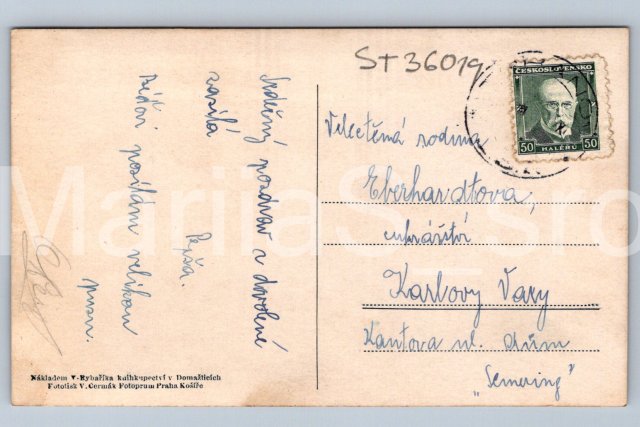 ST36019
ČESKOSLOVENSKO
50 HALÉŘŮ 50
Srdečný pozdrav z dovolené
zasílá
Pepča.
posílám velikou
pusu.
Velectěná rodina
Eberhardtova,
cukrářství
Karlovy Vary
Kantova ul. dům
„Semering"
Nákladem V. Rybaříka knihkupectví v Domažlicích
Fototisk V. Čermák Fotoprum Praha Košíře